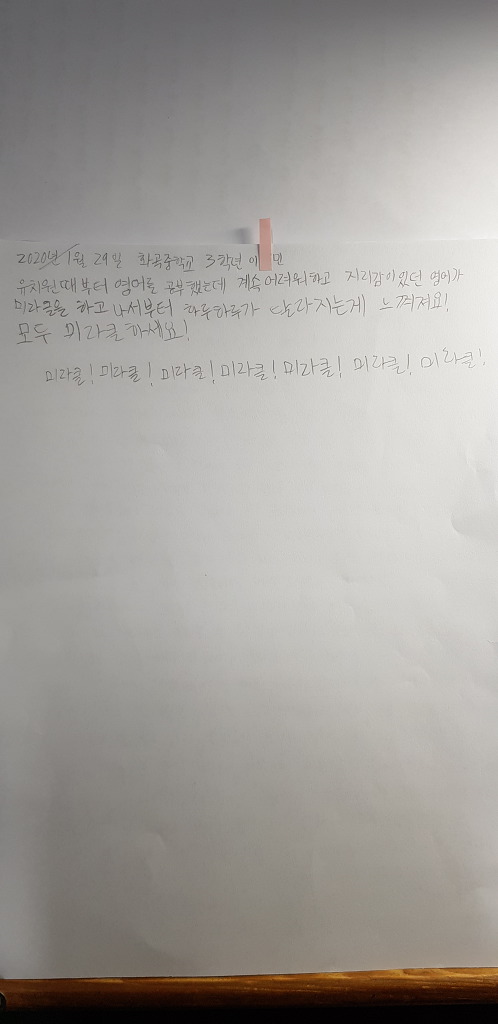 2020년 1월 29일 화곡중학교 3학년 이 민
유치원때부터 영어를 공부했는데 계속 어려워하고 지리감이있던 영어가
미라클을 하고 나서부터 하루하루가 달라지는게 느껴져요!
모두 미라클하세요!
미라클! 미라클! 미라클! 미라클! 미라클! 미라클! 미라클!